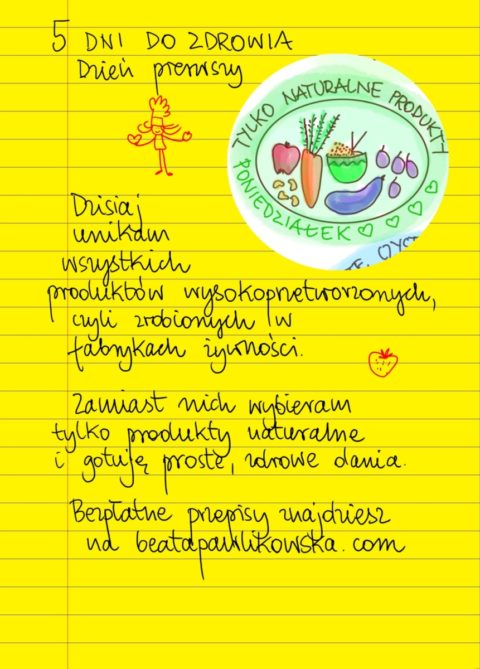 5 DNI DO ZDROWIA
Dzień pierwszy
TYLKO NATURALNE PRODUKTY
PONIEDZIAŁEK
Dzisiaj
unikam
wszystkich
produktów wysokoprzetworzonych,
czyli zrobionych w
fabrykach żywności.
Zamiast nich wybieram
tylko produkty naturalne
i gotuję proste, zdrowe dania.
Bezpłatne przepisy znajdziesz
na beatapawlikowska.com